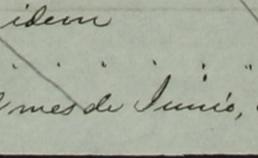 idem
" " " " : "
mes de Junio,